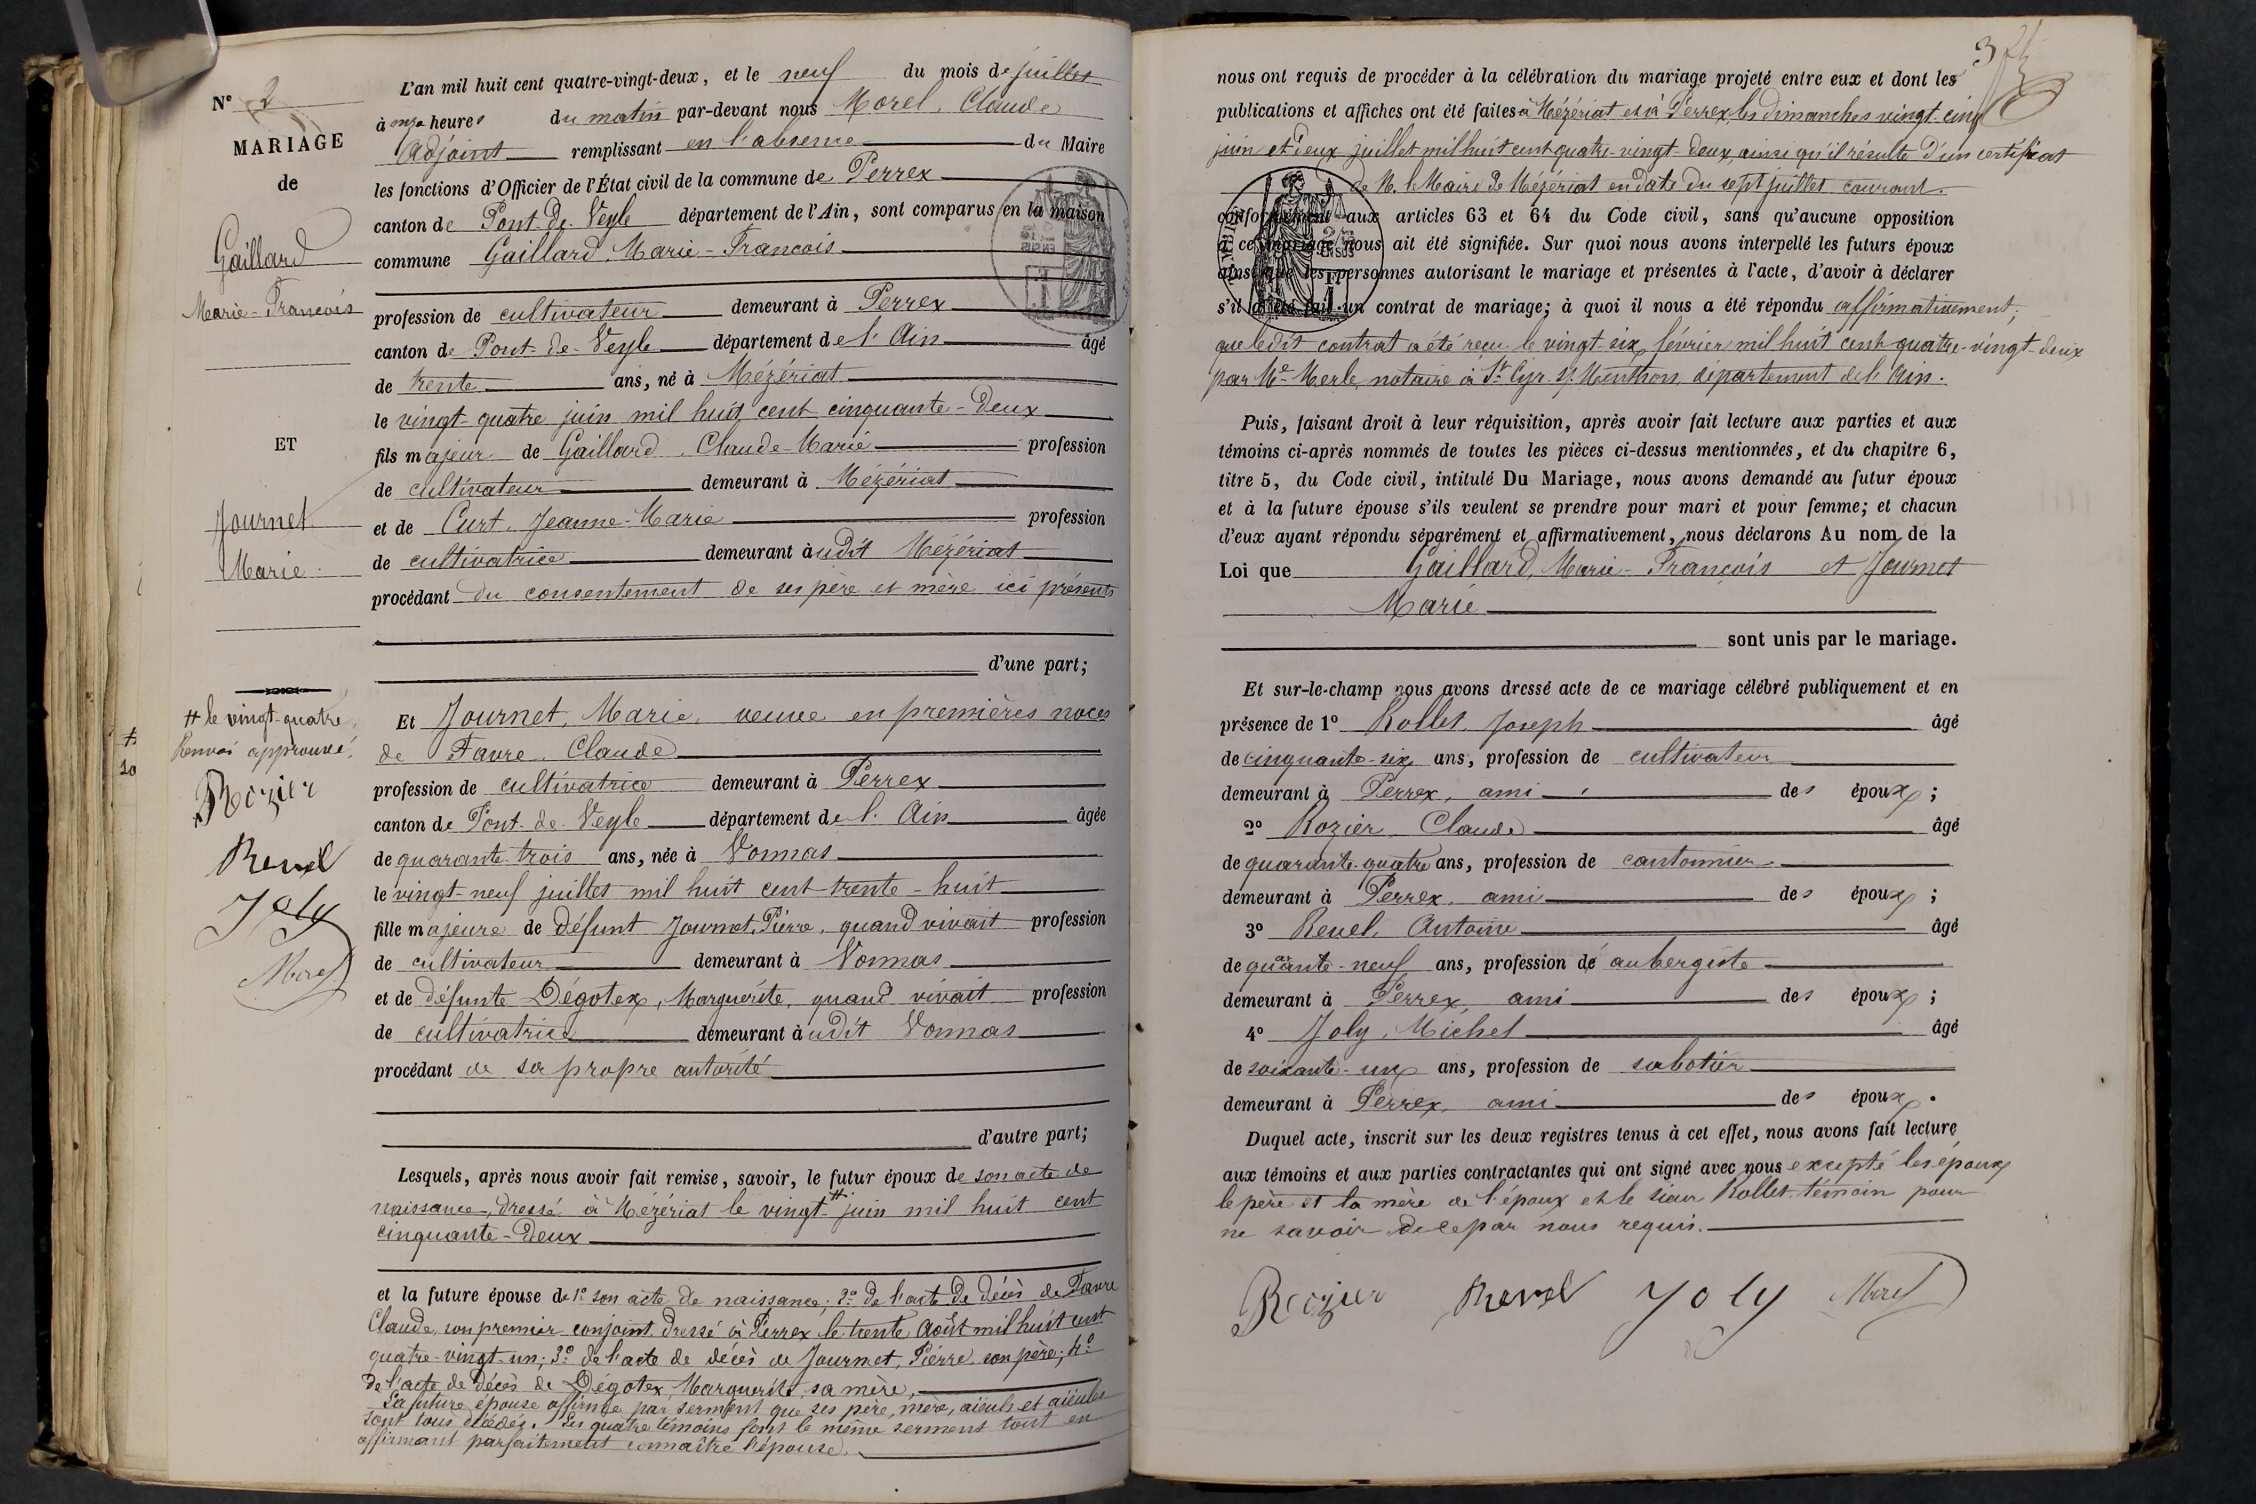 N° 2
MARIAGE
de
Gaillard
Marie-François
ET
Journet
Marie.
# le vingt-quatre.
Renvoi approuvé.
Rozier
Revel
Joly
Morel
L'an mil huit cent quatre-vingt-deux, et le neuf du mois de juillet
à onze heures du matin par-devant nous Morel, Claude
Adjoint remplissant en l'absence du Maire
les fonctions d'Officier de l'État civil de la commune de Perrex
canton de Pont-de-Veyle département de l'Ain, sont comparus en la maison
commune Gaillard, Marie-François
profession de cultivateur demeurant à Perrex
canton de Pont-de-Veyle département de l'Ain âgé
de trente ans, né à Mézériat
le vingt-quatre juin mil huit cent cinquante-deux
fils majeur de Gaillard, Claude-Marie profession
de cultivateur demeurant à Mézériat
et de Curt, Jeanne-Marie profession
de cultivatrice demeurant àudit Mézériat
procédant du consentement de ses père et mère ici présents
d'une part;
Et Journet, Marie, veuve en premières noces
de Favre, Claude
profession de cultivatrice demeurant à Perrex
canton de Pont-de-Veyle département de l'Ain âgée
de quarante-trois ans, née à Vonnas
le vingt-neuf juillet mil huit cent trente-huit
fille majeure de défunt Journet, Pierre, quand vivait profession
de cultivateur demeurant à Vonnas
et de défunte Dégotex, Marguerite, quand vivait profession
de cultivatrice demeurant àudit Vonnas
procédant de sa propre autorité
d'autre part;
Lesquels, après nous avoir fait remise, savoir, le futur époux de son acte de
naissance, dressé à Mézériat le vingt # juin mil huit cent
cinquante-deux
et la future épouse de 1° son acte de naissance; 2° de l'acte de décès de Favre
Claude, son premier conjoint, dressé à Perrex le trente Août mil huit cent
quatre-vingt-un; 3° de l'acte de décès de Journet, Pierre son père; 4°
de l'acte de décès de Dégotex, Marguerite, sa mère,
La future épouse affirme par serment que ses père, mère, aïeuls et aïeules
sont tous décédés. Les quatre témoins font le même serment tout en
affirmant parfaitement connaître l'épouse.
3
nous ont requis de procéder à la célébration du mariage projeté entre eux et dont les
publications et affiches ont été faites à Mézériat et à Perrex, les dimanches vingt-cinq
juin et deux juillet mil huit cent quatre-vingt-deux, ainsi qu'il résulte d'un certificat
de M. le Maire de Mézériat en date du sept juillet courant.
conformément aux articles 63 et 64 du Code civil, sans qu'aucune opposition
à ce mariage nous ait été signifiée. Sur quoi nous avons interpellé les futurs époux
ainsi que les personnes autorisant le mariage et présentes à l'acte, d'avoir à déclarer
s'il a été fait un contrat de mariage; à quoi il nous a été répondu affirmativement;
que ledit contrat a été reçu le vingt-six février mil huit cent quatre-vingt-deux
par Me Merle, notaire à St Cyr-s/-Menthon, département de l'Ain.
Puis, faisant droit à leur réquisition, après avoir fait lecture aux parties et aux
témoins ci-après nommés de toutes les pièces ci-dessus mentionnées, et du chapitre 6,
titre 5, du Code civil, intitulé Du Mariage, nous avons demandé au futur époux
et à la future épouse s'ils veulent se prendre pour mari et pour femme; et chacun
d'eux ayant répondu séparément et affirmativement, nous déclarons Au nom de la
Loi que Gaillard, Marie-François et Journet
Marie
sont unis par le mariage.
Et sur-le-champ nous avons dressé acte de ce mariage célébré publiquement et en
présence de 1° Rollet, Joseph âgé
de cinquante-six ans, profession de cultivateur
demeurant à Perrex, ami des époux;
2° Rozier Claude âgé
de quarante-quatre ans, profession de cantonnier
demeurant à Perrex, ami des époux;
3° Revel, Antoine âgé
de quarante-neuf ans, profession de aubergiste
demeurant à Perrex, ami des époux;
4° Joly, Michel âgé
de soixante-un ans, profession de sabotier
demeurant à Perrex, ami des époux.
Duquel acte, inscrit sur les deux registres tenus à cet effet, nous avons fait lecture
aux témoins et aux parties contractantes qui ont signé avec nous excepté les époux
le père et la mère de l'époux et le sieur Rollet témoin pour
ne savoir de ce par nous requis.
Rozier Revel Joly Morel